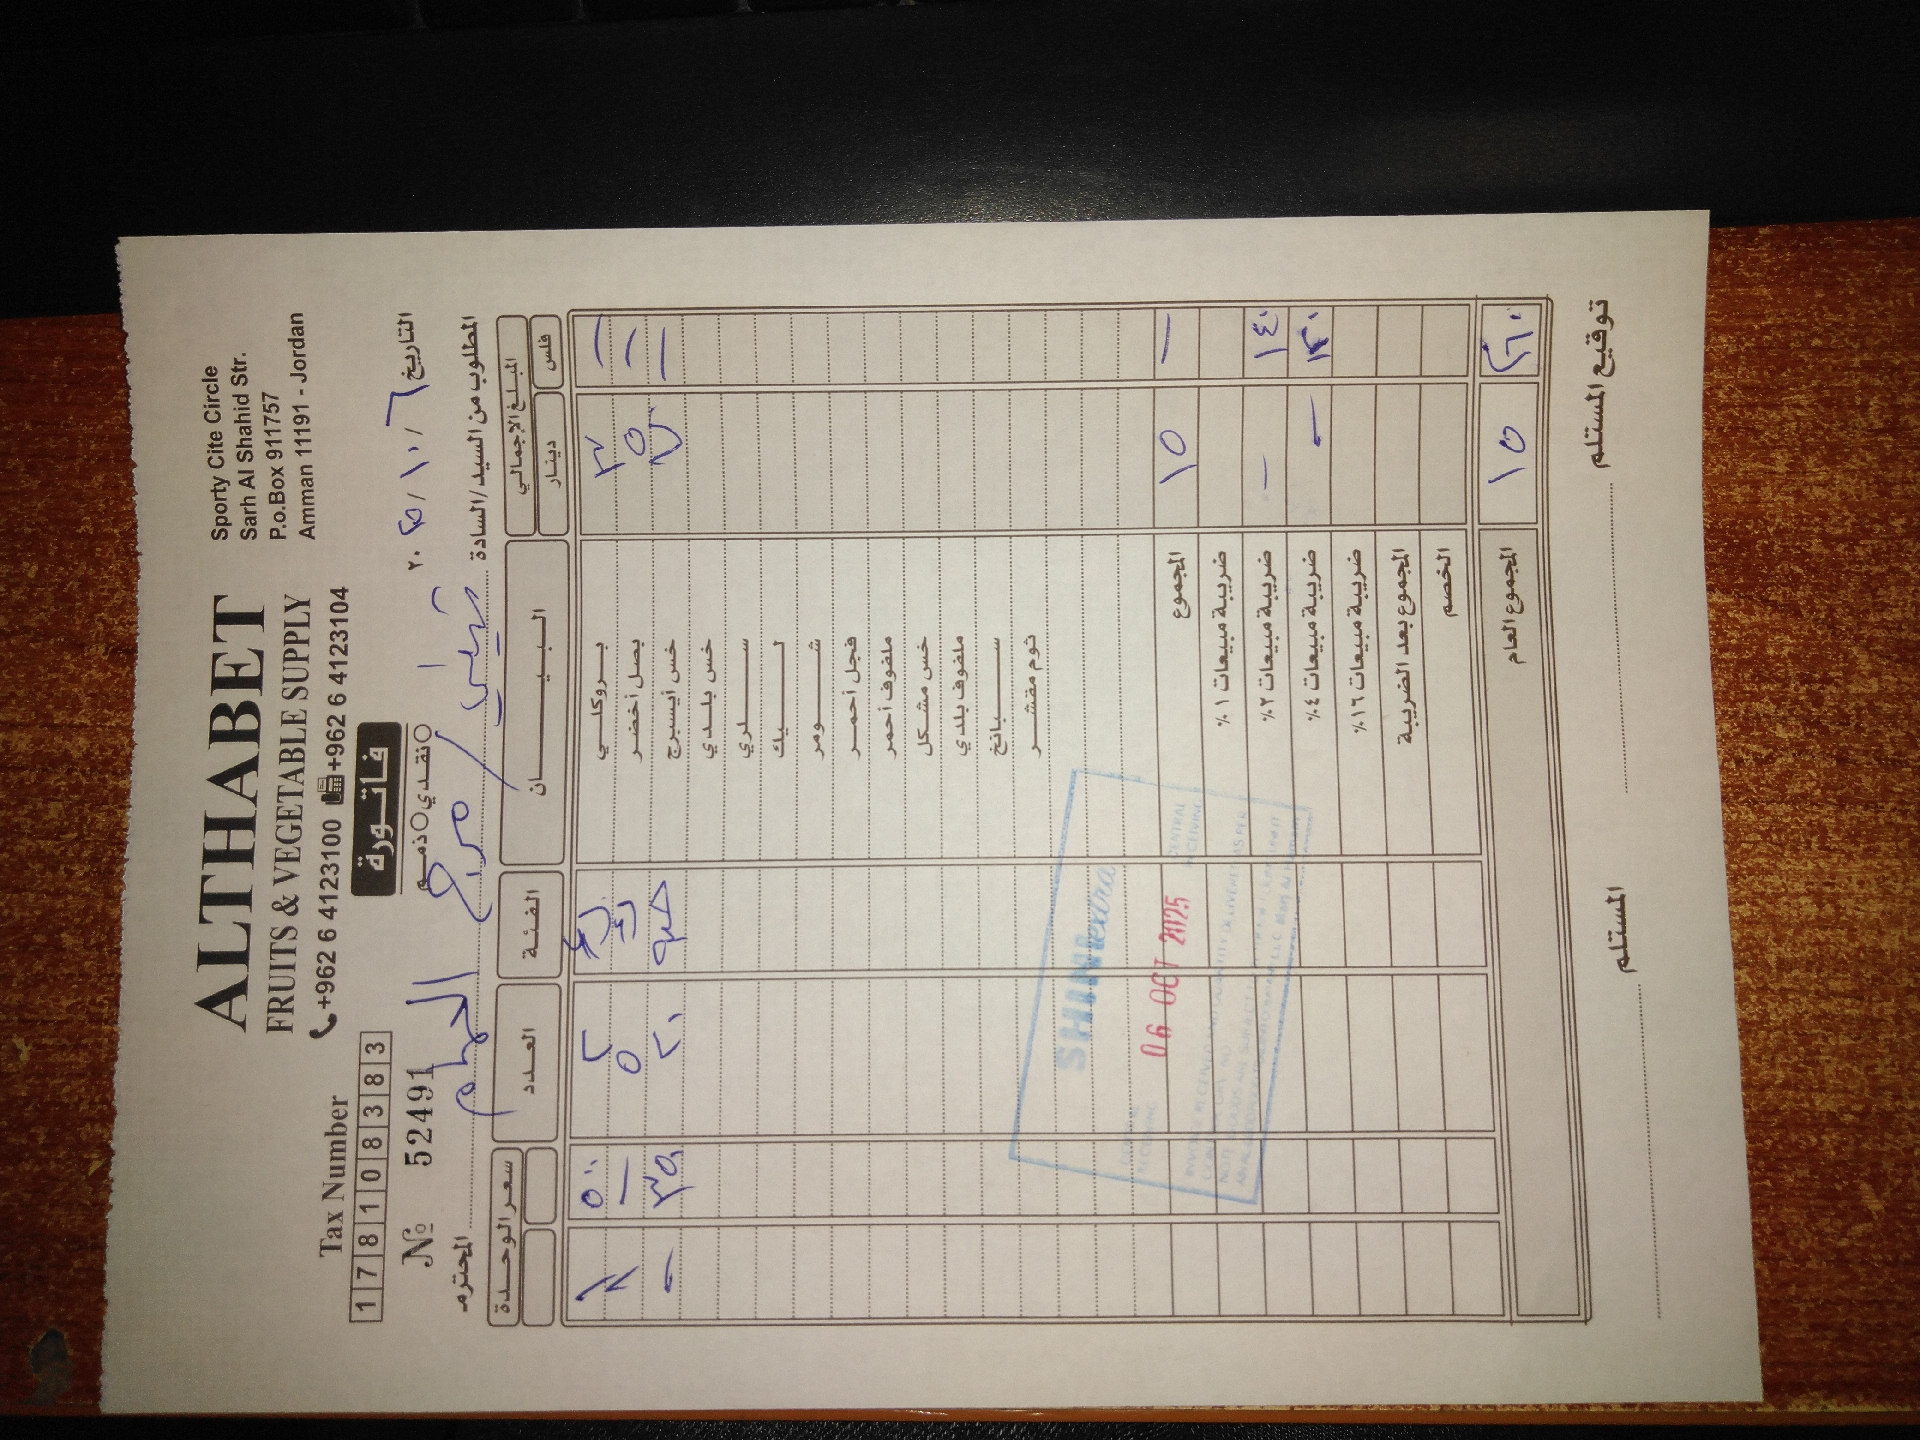 ALTHABET
FRUITS & VEGETABLE SUPPLY
+962 6 4123100 +962 6 4123104
Sporty Cite Circle
Sarh Al Shahid Str.
P.o.Box 911757
Amman 11191 - Jordan
Tax Number
178108383
فاتورة
نقدي ذمم
№ 52491
التاريخ ٦ / ١٠ / ٢٠٢٥
المطلوب من السيد/السادة المحترم
المبلغ الإجمالي البيـــــان الفئة العدد سعر الوحدة
فلس دينار
— ٣ بروكلي ٢ ٥٠٠ ١
— ٥ بصل أخضر ٥ — ١
— ٧ خس أيسبرج حبه ٢٠ ٣٥٠ -
خس بلدي
سلري
ليك
شومر
فجل أحمر
ملفوف أحمر
خس مشكل
ملفوف بلدي
سبانخ
ثوم مقشر
— ١٥ المجموع
ضريبة مبيعات ١٪
١٤٠ - ضريبة مبيعات ٢٪
- ضريبة مبيعات ٤٪
ضريبة مبيعات ١٦٪
المجموع بعد الضريبة
الخصم
١٥ المجموع العام
CENTRAL RECEIVING
06 OCT 2025
توقيع المستلم المستلم